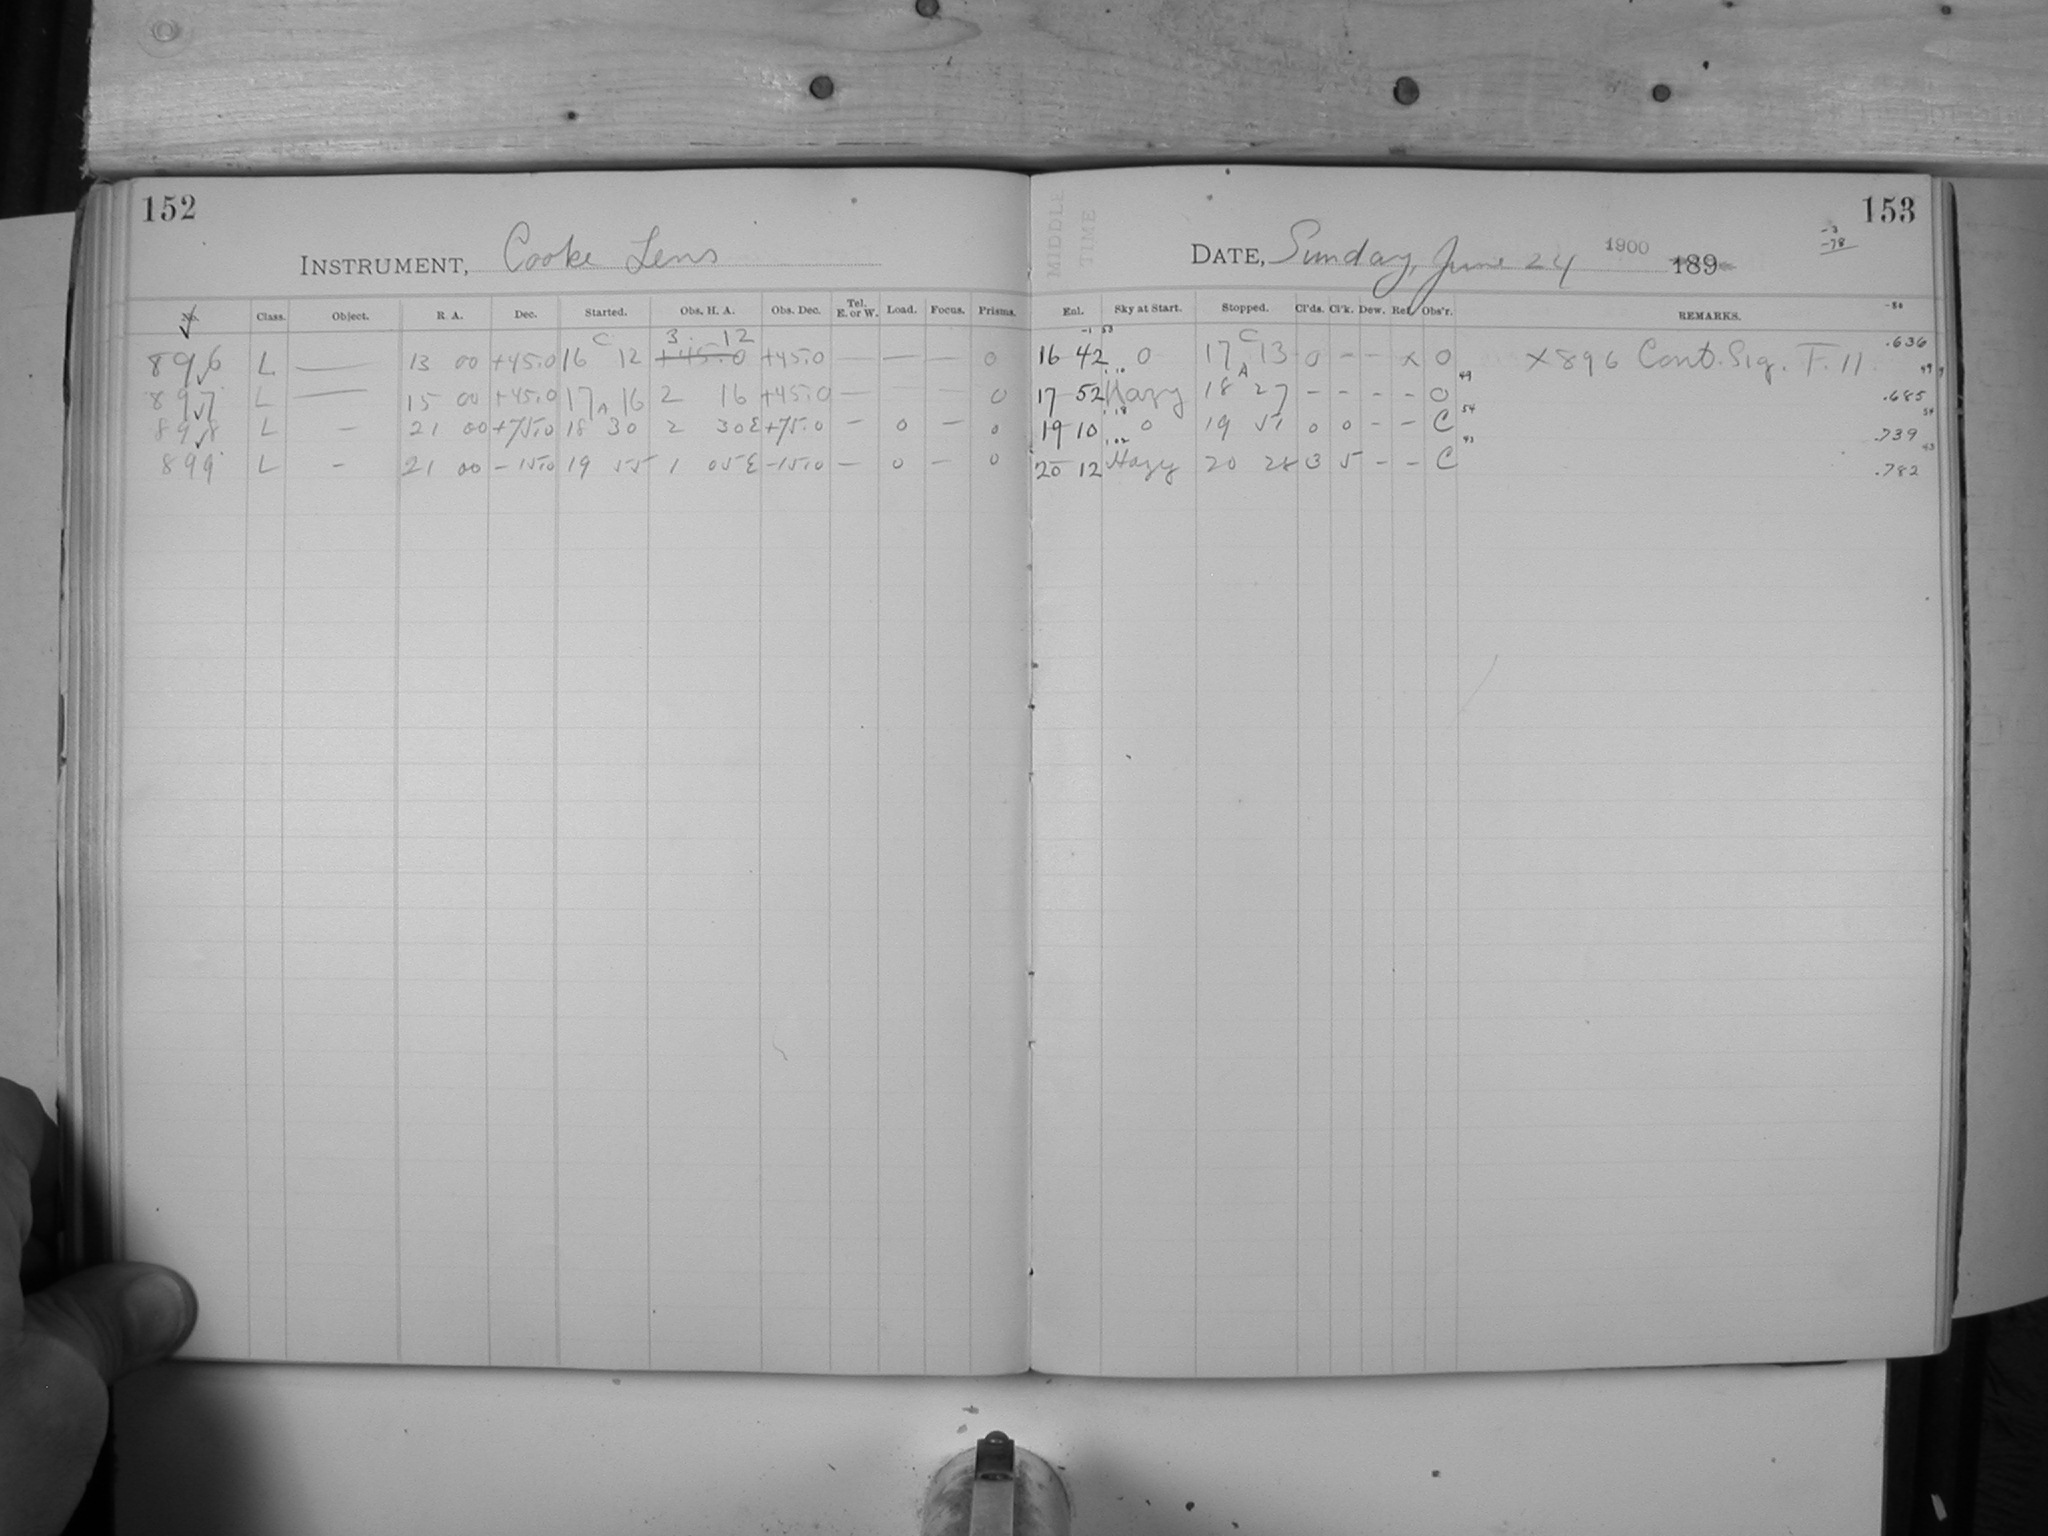 152
INSTRUMENT, Cooke Lens
No. Class. Object. R. A. Dec. Started. Obs. H. A. Obs. Dec. Tel. E. or W. Load. Focus. Prisms.
C 3 12
896 L — 13 00 +45.0 16 12 +45.0 +45.0 — — — 0
897 L — 15 00 +45.0 17 16 2 16 +45.0 — 0
A
898 L — 21 00 +75.0 18 30 2 30E +75.0 — 0 — 0
899 L — 21 00 -15.0 19 55 1 05E -15.0 — 0 — 0
MIDDLE TIME
153
DATE, Sunday, June 24 1900 189
-3
-78
Exl. Sky at Start. Stopped. Cl'ds. Cl'k. Dew. Ref. Obs'r. REMARKS.
-1 53 C
16 42 0 17 13 0 - - x 0 X896 Cont. Sig. T. 11 .636
A 49
17 52 Hazy 18 27 - - - - 0 .685
54
19 10 0 19 51 0 0 - - C .739
43
20 12 Hazy 20 28 3 5 - - C .782